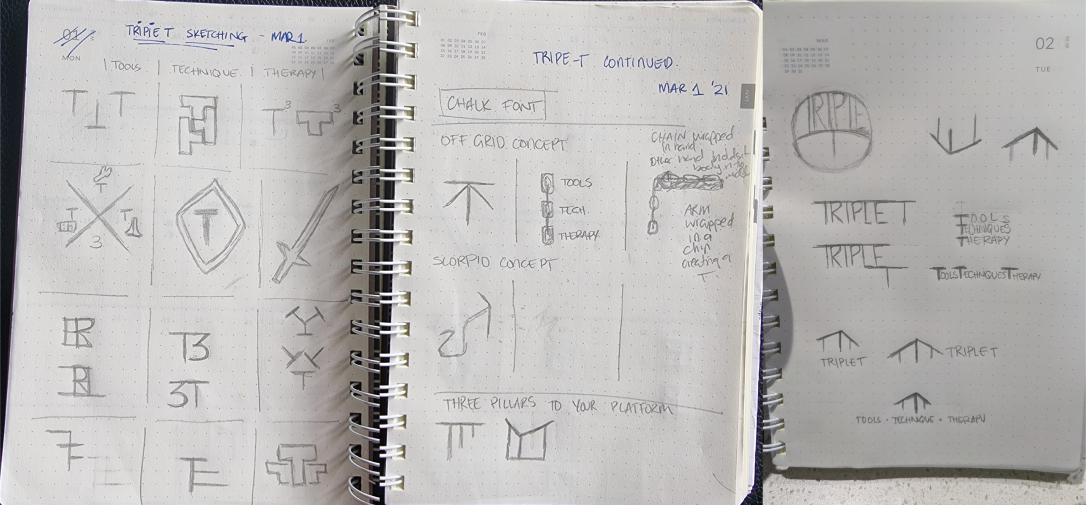 01
MON
TRIPLE T SKETCHING - MAR 1
TOOLS
TECHNIQUE
THERAPY
T T T
T³
3
T
T
T
3
T
T3
3T
T
TRIPE-T CONTINUED.
MAR 1 '21
CHALK FONT
OFF GRID CONCEPT
CHAIN wrapped
in hand
Other hand
body
TOOLS
TECH.
THERAPY
ARM
wrapped
in a
creating a
T
SCORPIO CONCEPT
THREE PILLARS TO YOUR PLATFORM
02
TUE
TRIPLE
TRIPLE T
TOOLS
TECHNIQUES
THERAPY
TRIPLE
T
TOOLSTECHNIQUESTHERAPY
TRIPLET
TRIPLET
TOOLS · TECHNIQUE · THERAPY